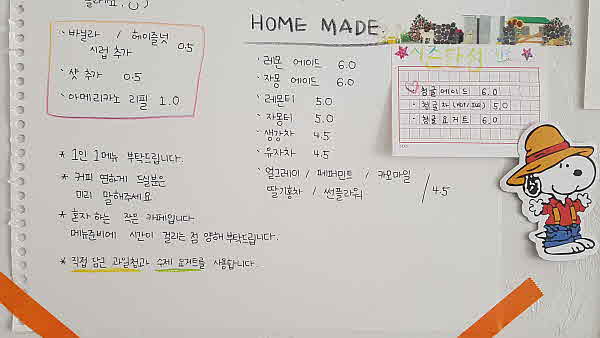 · 바닐라 / 헤이즐넛
시럽 추가 0.5
· 샷 추가 0.5
· 아메리카노 리필 1.0
* 1인 1메뉴 부탁드립니다.
* 커피 연하게 드실분은
미리 말해주세요
* 혼자 하는 작은 카페입니다
메뉴준비에 시간이 걸리는 점 양해 부탁드립니다.
* 직접 담근 과일청과 수제 요거트를 사용합니다.
HOME MADE.
· 레몬 에이드 6.0
· 자몽 에이드 6.0
· 레몬티 5.0
· 자몽티 5.0
· 생강차 4.5
· 유자차 4.5
· 얼그레이 / 페퍼민트 / 카모마일
딸기홍차 / 썬플라워 / 4.5
· 청귤에이드 6.0
· 청귤차 5.0
· 청귤요거트 6.0